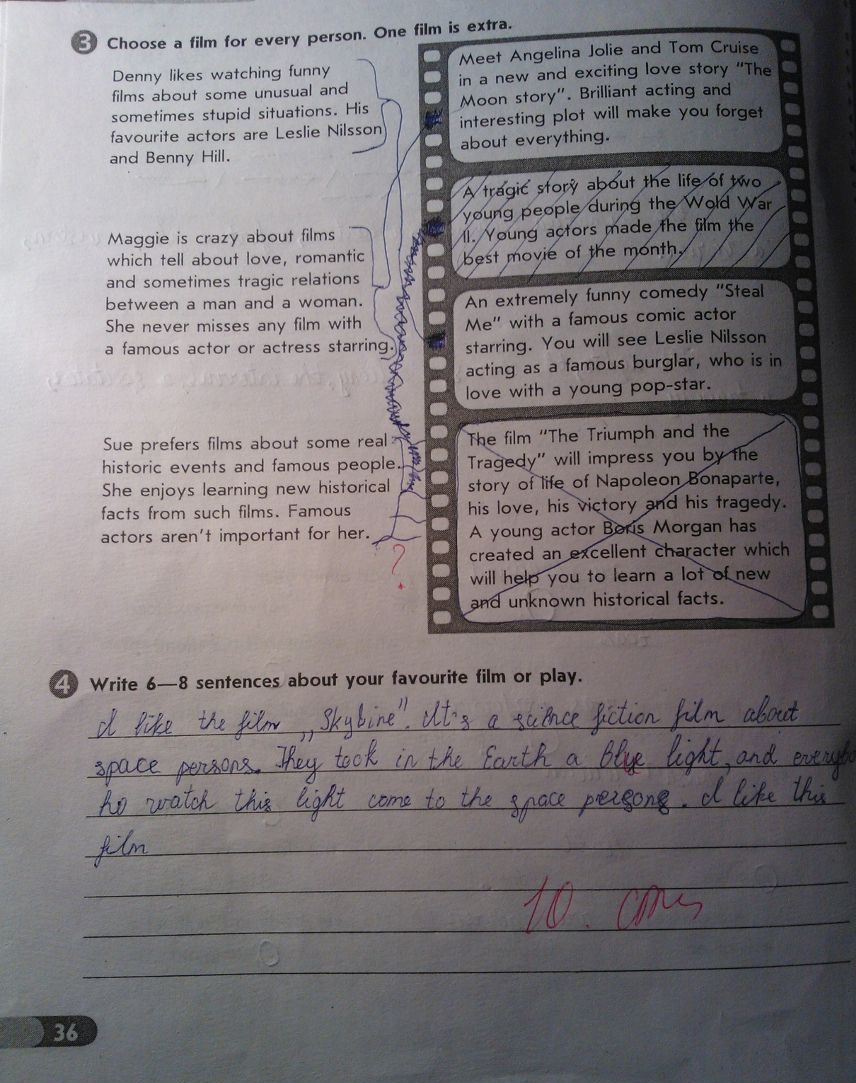 3 Choose a film for every person. One film is extra.
Denny likes watching funny
films about some unusual and
sometimes stupid situations. His
favourite actors are Leslie Nilsson
and Benny Hill.
Maggie is crazy about films
which tell about love, romantic
and sometimes tragic relations
between a man and a woman.
She never misses any film with
a famous actor or actress starring.
Sue prefers films about some real
historic events and famous people.
She enjoys learning new historical
facts from such films. Famous
actors aren't important for her.
?
Meet Angelina Jolie and Tom Cruise
in a new and exciting love story "The
Moon story". Brilliant acting and
interesting plot will make you forget
about everything.
A tragic story about the life of two
young people during the Wold War
II. Young actors made the film the
best movie of the month.
An extremely funny comedy "Steal
Me" with a famous comic actor
starring. You will see Leslie Nilsson
acting as a famous burglar, who is in
love with a young pop-star.
The film "The Triumph and the
Tragedy" will impress you by the
story of life of Napoleon Bonaparte,
his love, his victory and his tragedy.
A young actor Boris Morgan has
created an excellent character which
will help you to learn a lot of new
and unknown historical facts.
4 Write 6—8 sentences about your favourite film or play.
I like the film „Skyline". It's a science fiction film about
space persons. They took in the Earth a blye light, and everybo
ho watch this light come to the space persons. I like this
film
10.
36